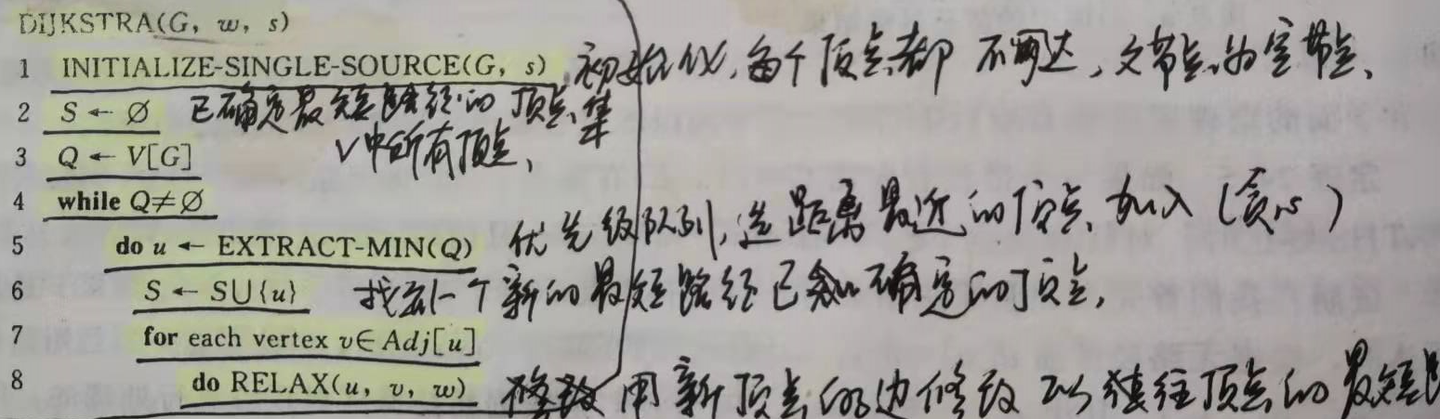 DIJKSTRA(G, w, s)
1 INITIALIZE-SINGLE-SOURCE(G, s) 初始化,每个顶点都不可达,父节点为空节点、
2 S ← ∅ 已确定最短路径的顶点集
3 Q ← V[G] V中所有顶点、
4 while Q≠∅
5 do u ← EXTRACT-MIN(Q) 优先级队列,选距离最近的顶点加入(贪心)
6 S ← S∪{u} 找到一个新的最短路径已确定的顶点,
7 for each vertex v∈Adj[u]
8 do RELAX(u, v, w) 用新顶点的边修改 往顶点的最短